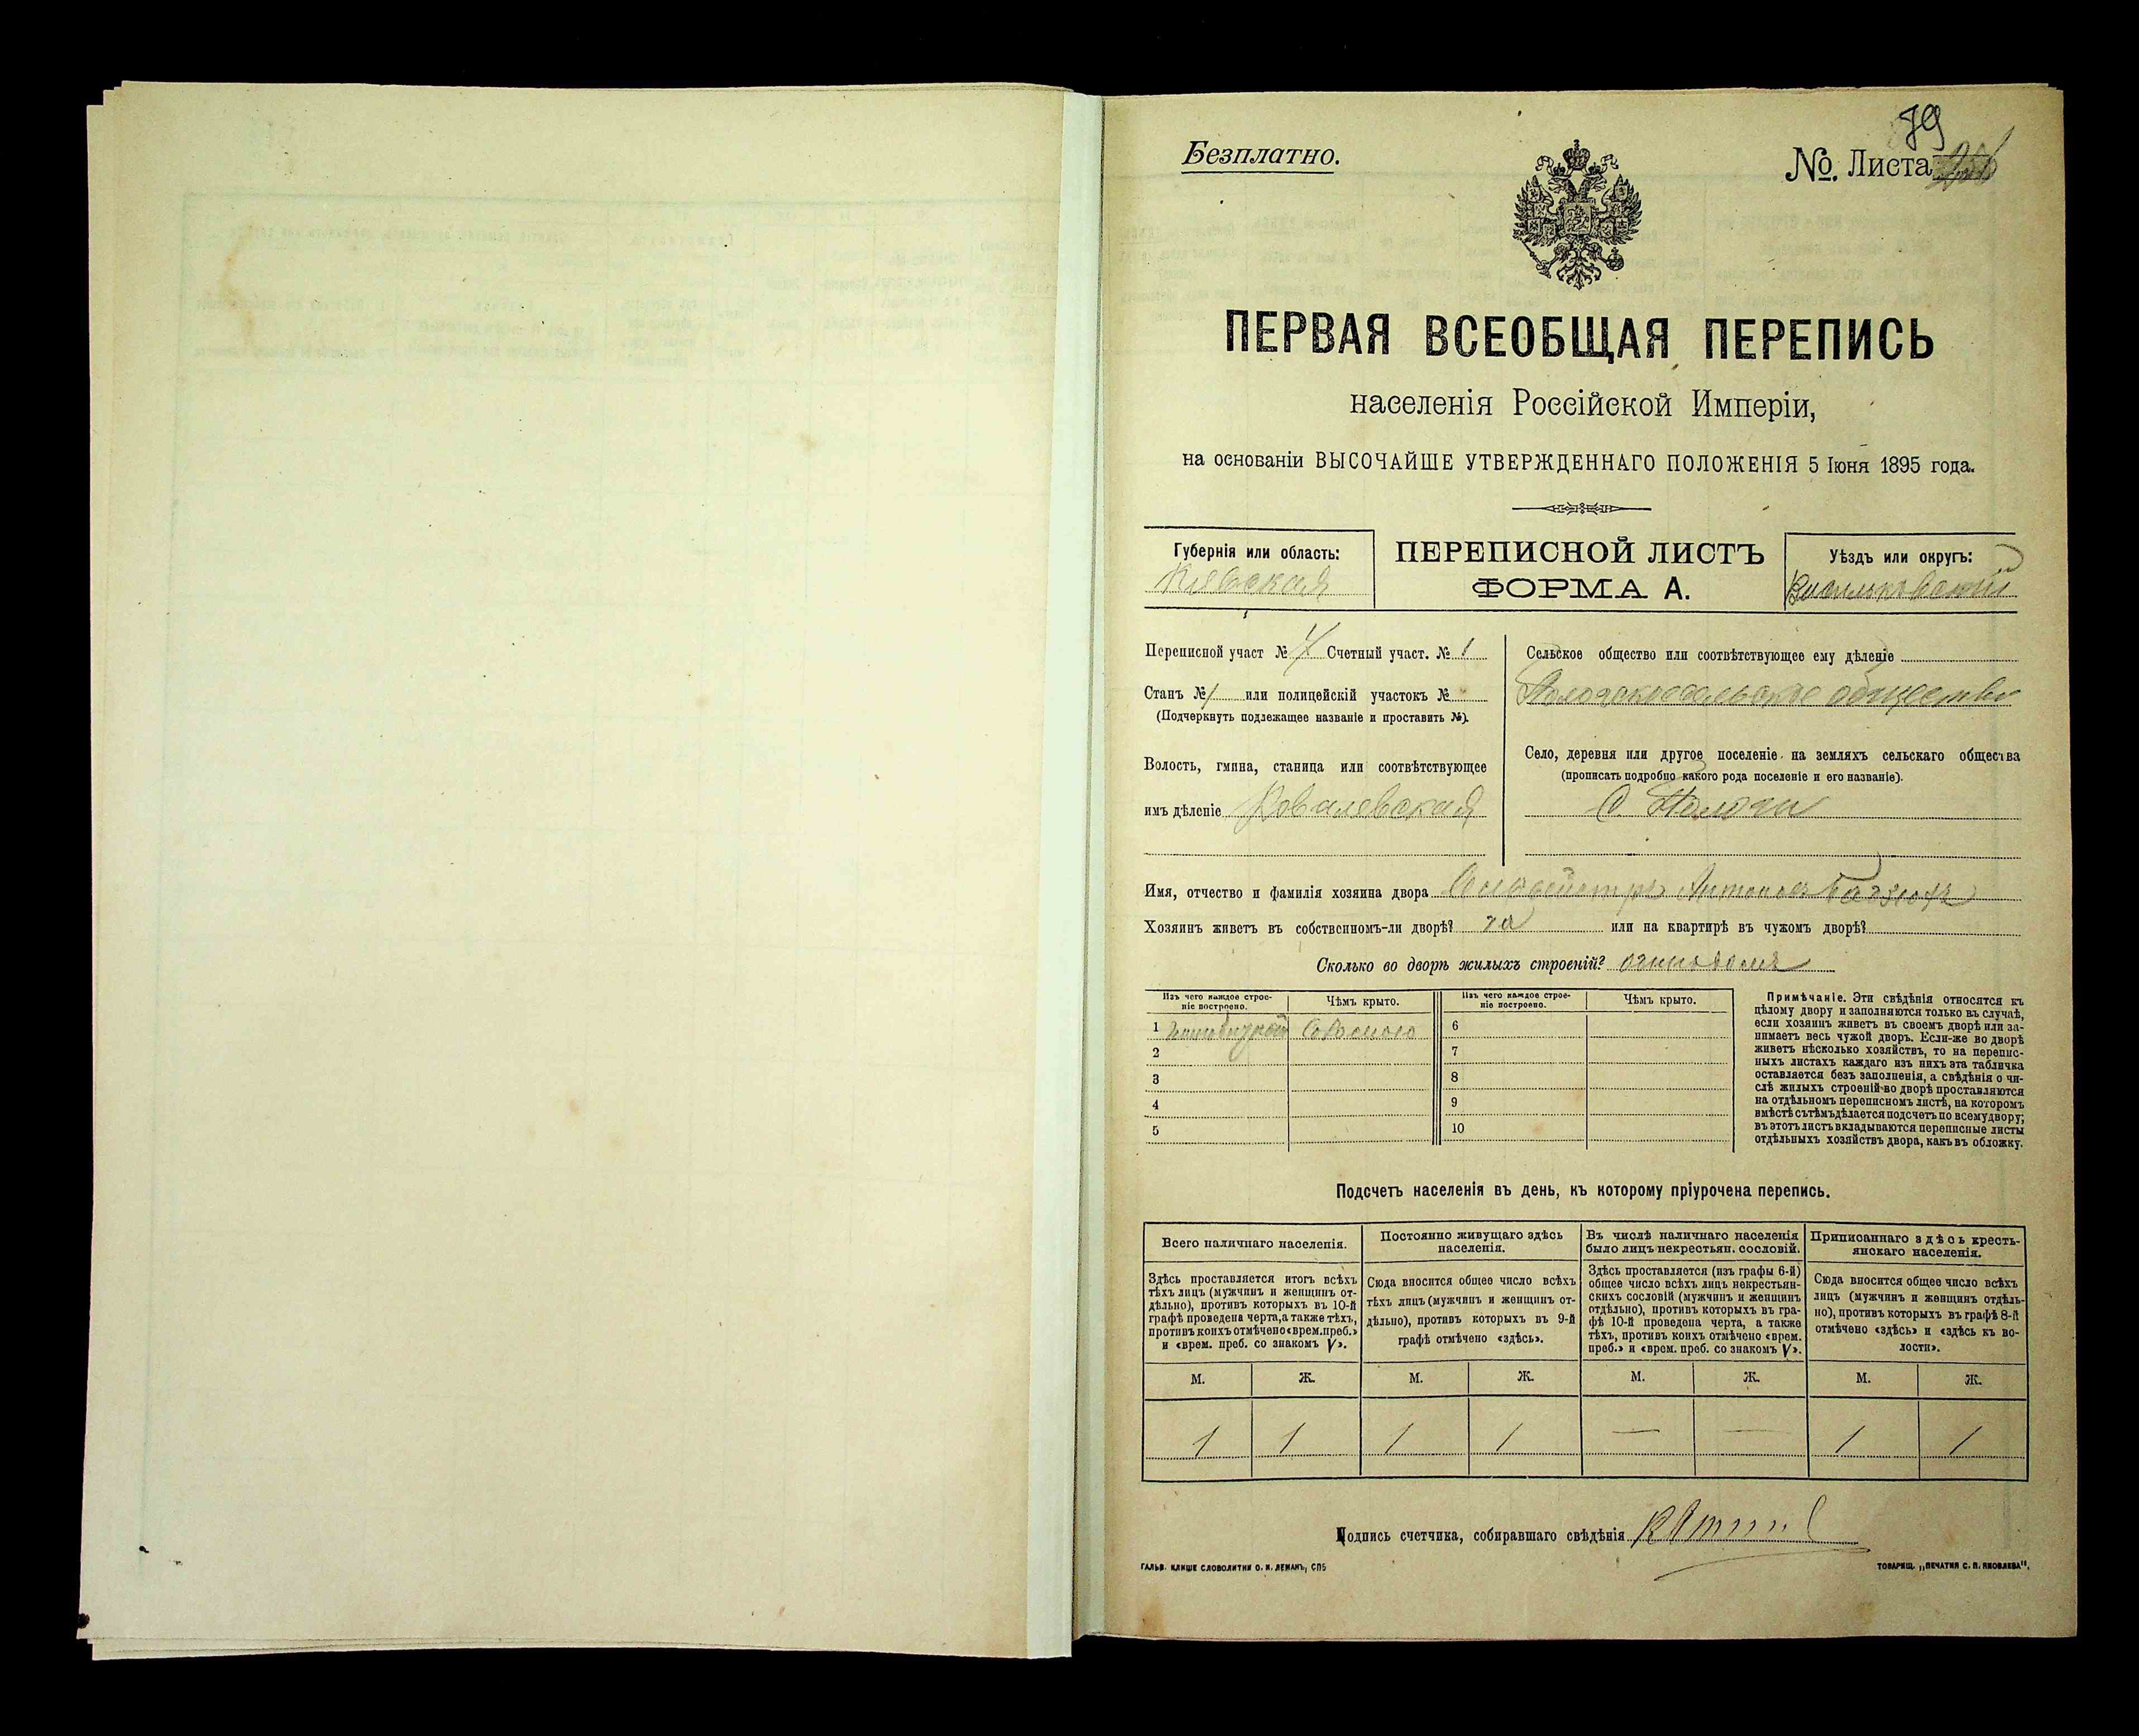 79
Безплатно.
№ Листа
ПЕРВАЯ ВСЕОБЩАЯ ПЕРЕПИСЬ
населенія Россійской Имперіи,
на основаніи ВЫСОЧАЙШЕ УТВЕРЖДЕННАГО ПОЛОЖЕНІЯ 5 Іюня 1895 года.
Губернія или область:
Кіевская
ПЕРЕПИСНОЙ ЛИСТЪ
ФОРМА А.
Уѣздъ или округъ:
Васильковскій
Переписной участ № 4 Счетный участ. № 1
Станъ № 1 или полицейскій участокъ №
(Подчеркнуть подлежащее названіе и проставить №).
Волость, гмина, станица или соотвѣтствующее
имъ дѣленіе Ковалевская
Сельское общество или соотвѣтствующее ему дѣленіе
общество
Село, деревня или другое поселеніе на земляхъ сельскаго общества
(прописать подробно какого рода поселеніе и его названіе).
С. Пологи
Имя, отчество и фамилія хозяина двора Антоновъ
Хозяинъ живетъ въ собственномъ-ли дворѣ? да или на квартирѣ въ чужомъ дворѣ?
Сколько во дворѣ жилыхъ строеній?
Изъ чего каждое строеніе построено.
Чѣмъ крыто.
Изъ чего каждое строеніе построено.
Чѣмъ крыто.
1 Соломою 6
2 7
3 8
4 9
5 10
Примѣчаніе. Эти свѣдѣнія относятся къ
цѣлому двору и заполняются только въ случаѣ,
если хозяинъ живетъ въ своемъ дворѣ или за-
нимаетъ весь чужой дворъ. Если-же во дворѣ
живетъ нѣсколько хозяйствъ, то на перепис-
ныхъ листахъ каждаго изъ нихъ эта табличка
оставляется безъ заполненія, а свѣдѣнія о чи-
слѣ жилыхъ строеній во дворѣ проставляются
на отдѣльномъ переписномъ листѣ, на которомъ
вмѣстѣ съ тѣмъ дѣлается подсчетъ по всему двору;
въ этотъ листъ вкладываются переписные листы
отдѣльныхъ хозяйствъ двора, какъ въ обложку.
Подсчетъ населенія въ день, къ которому пріурочена перепись.
Всего наличнаго населенія.
Здѣсь проставляется итогъ всѣхъ
тѣхъ лицъ (мужчинъ и женщинъ от-
дѣльно), противъ которыхъ въ 10-й
графѣ проведена черта, а также тѣхъ,
противъ коихъ отмѣчено «врем. преб.»
и «врем. преб. со знакомъ V».
Постоянно живущаго здѣсь
населенія.
Сюда вносится общее число всѣхъ
тѣхъ лицъ (мужчинъ и женщинъ от-
дѣльно), противъ которыхъ въ 9-й
графѣ отмѣчено «здѣсь».
Въ числѣ наличнаго населенія
было лицъ некрестьян. сословій.
Здѣсь проставляется (изъ графы 6-й)
общее число всѣхъ лицъ некрестьян-
скихъ сословій (мужчинъ и женщинъ
отдѣльно), противъ которыхъ въ гра-
фѣ 10-й проведена черта, а также
тѣхъ, противъ коихъ отмѣчено «врем.
преб.» и «врем. преб. со знакомъ V».
Приписаннаго здѣсь кресть-
янскаго населенія.
Сюда вносится общее число всѣхъ
лицъ (мужчинъ и женщинъ отдѣль-
но), противъ которыхъ въ графѣ 8-й
отмѣчено «здѣсь» и «здѣсь къ во-
лости».
М. Ж. М. Ж. М. Ж. М. Ж.
1 1 1 1 — — 1 1
Подпись счетчика, собиравшаго свѣдѣнія
ГАЛЬВ. КЛИШЕ СЛОВОЛИТНИ О. И. ЛЕМАНЪ, СПБ
ТОВАРИЩ. „ПЕЧАТНЯ С. П. ЯКОВЛЕВА“.